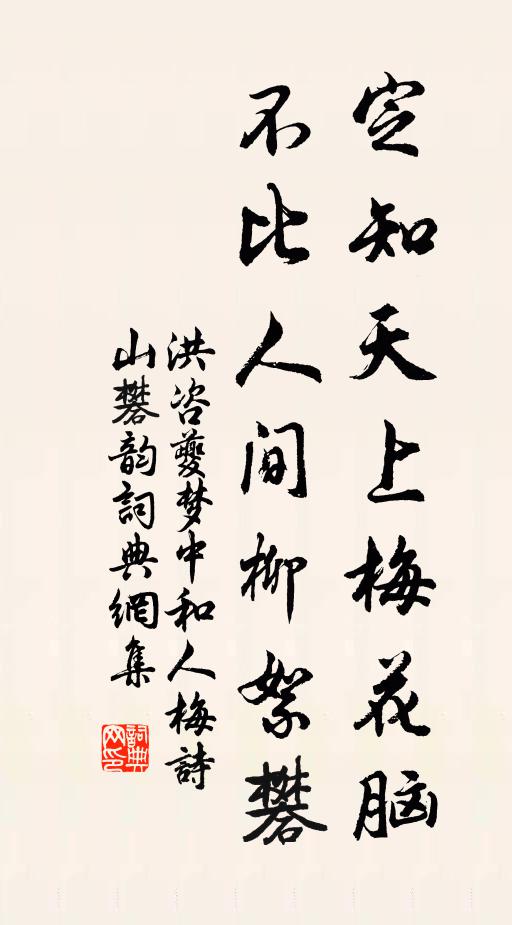 定知天上梅花脑
不比人间柳絮礬
洪咨夔梦中和人梅詩
山礬韵詞典網集
詞典
网印